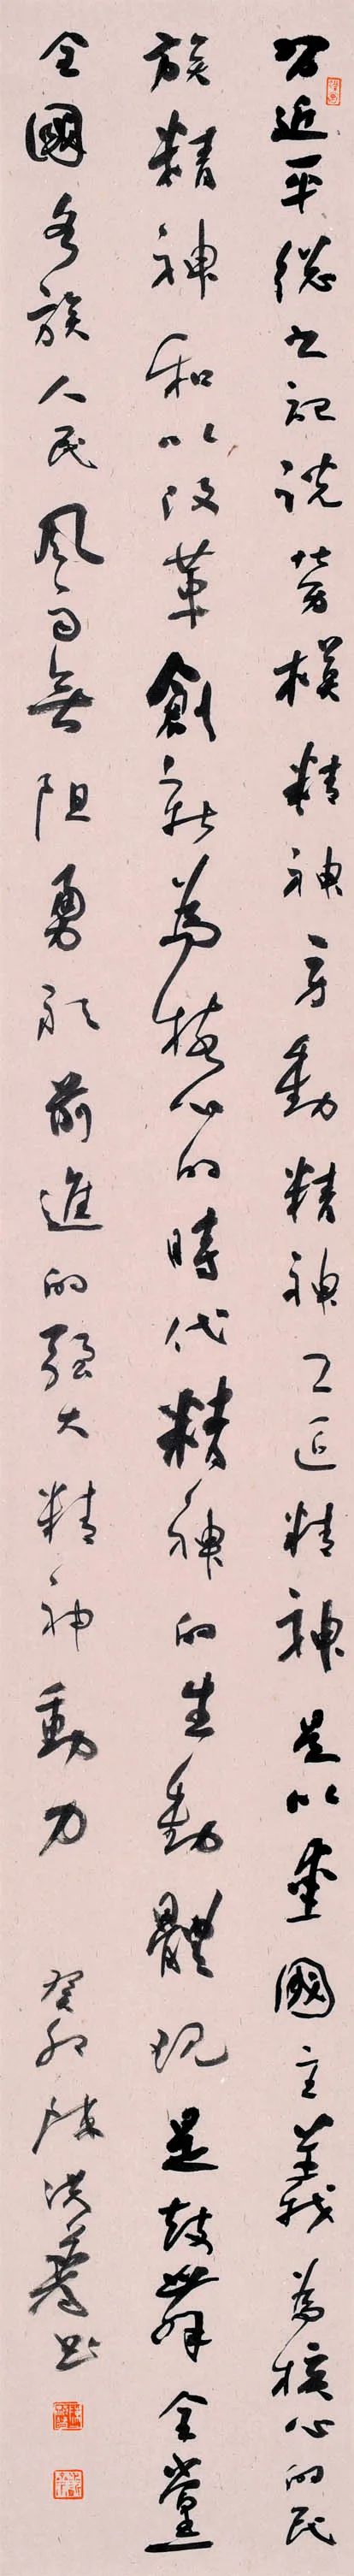 習近平總書記說勞模精神勞動精神工匠精神是以愛國主義為核心的民
族精神和以改革創新為核心的時代精神的生動體現是鼓舞全黨
全國各族人民風雨無阻勇敢前進的強大精神動力 癸卯 陳洪書